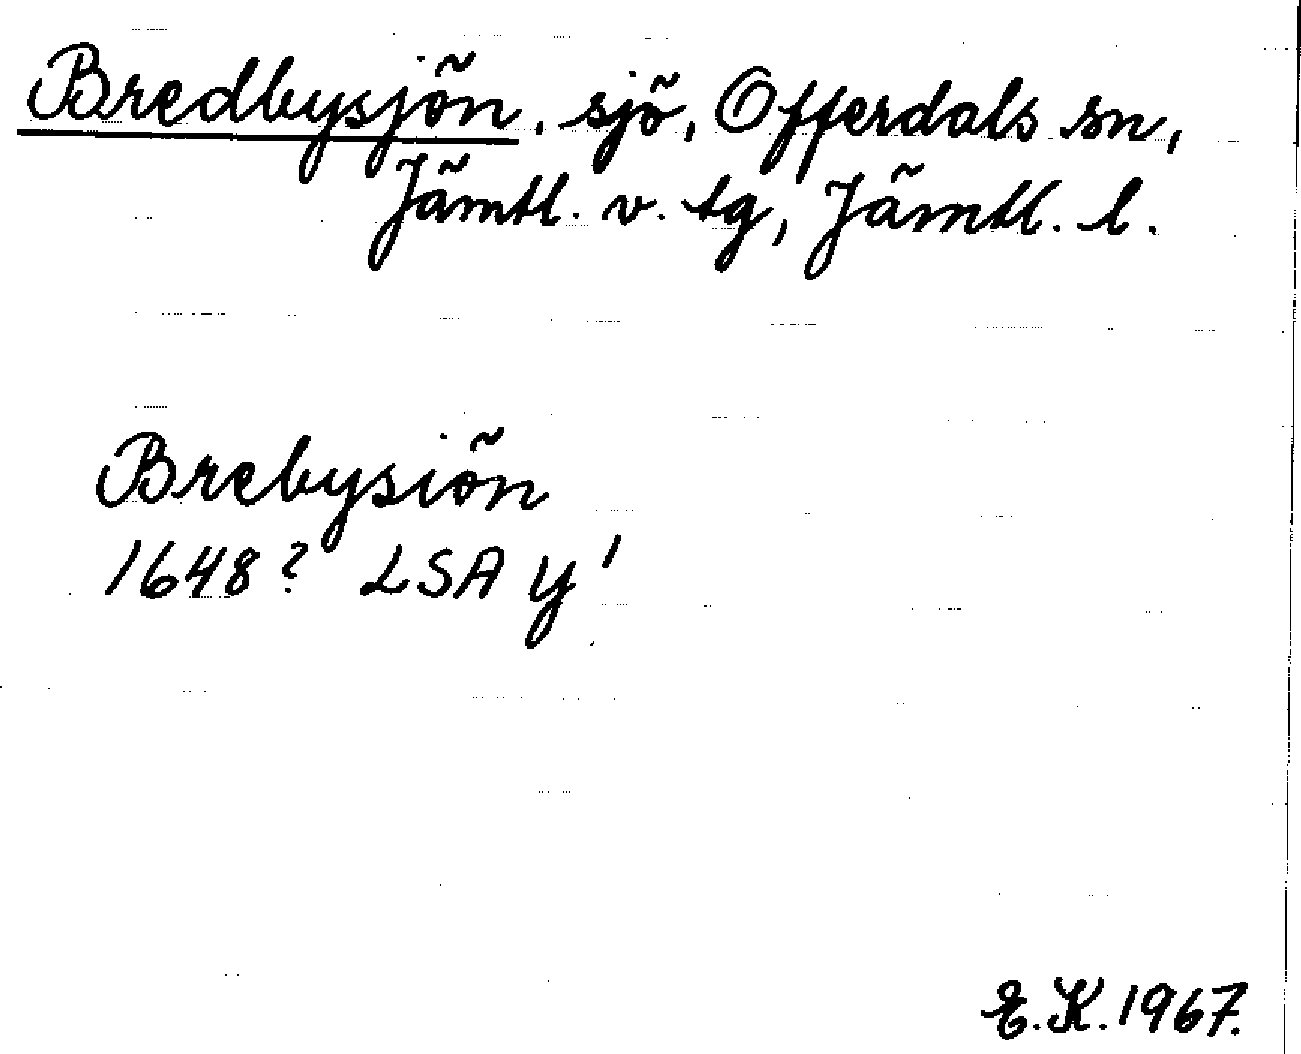 Bredbysjön, sjö, Offerdals sn,
Jämtl. v. tg, Jämtl. l.
Brebysiön
1648? LSA y'
E.K.1967.